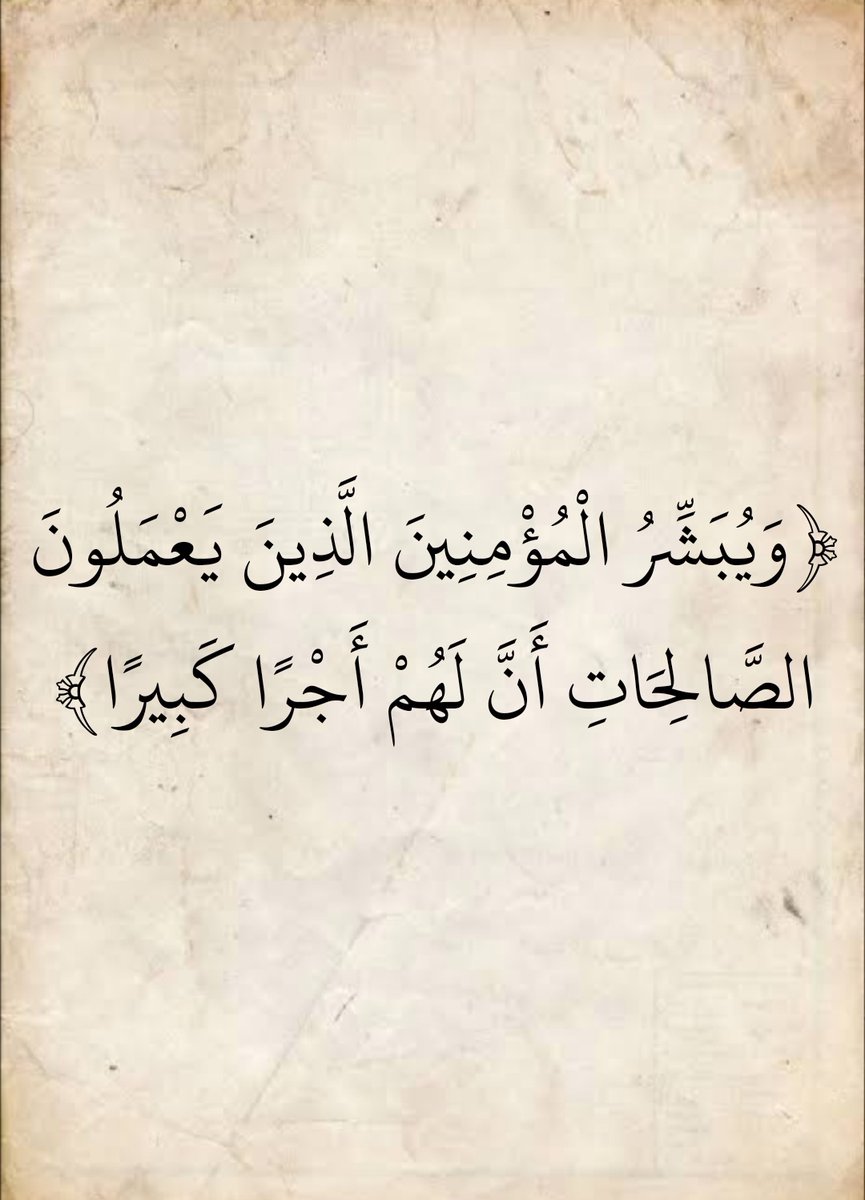 ﴿وَيُبَشِّرُ الْمُؤْمِنِينَ الَّذِينَ يَعْمَلُونَ
الصَّالِحَاتِ أَنَّ لَهُمْ أَجْرًا كَبِيرًا﴾